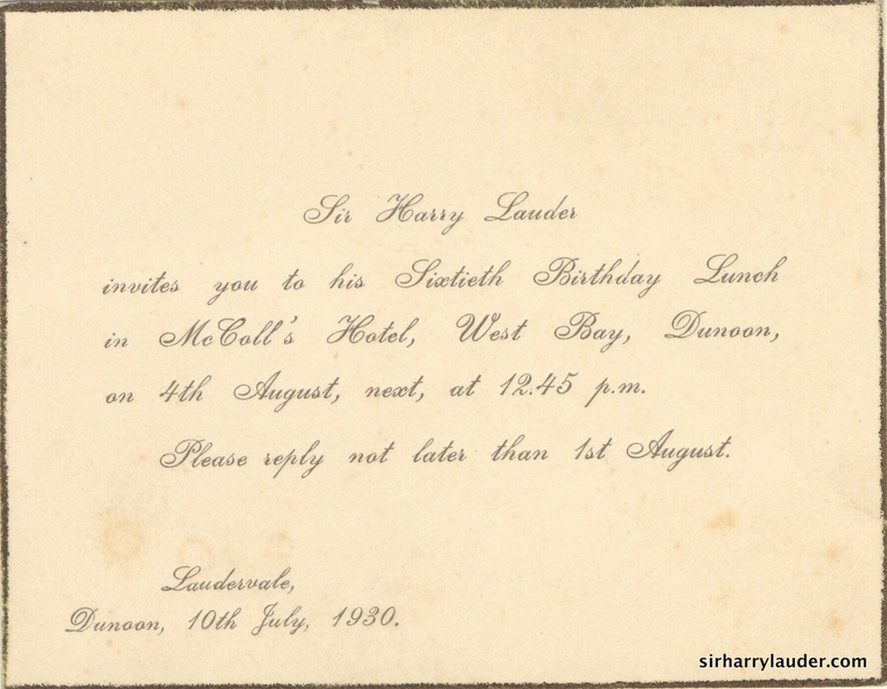 Sir Harry Lauder
invites you to his Sixtieth Birthday Lunch
in McColl's Hotel, West Bay, Dunoon,
on 4th August, next, at 12.45 p.m.
Please reply not later than 1st August.
Laudervale,
Dunoon, 10th July, 1930.
sirharrylauder.com